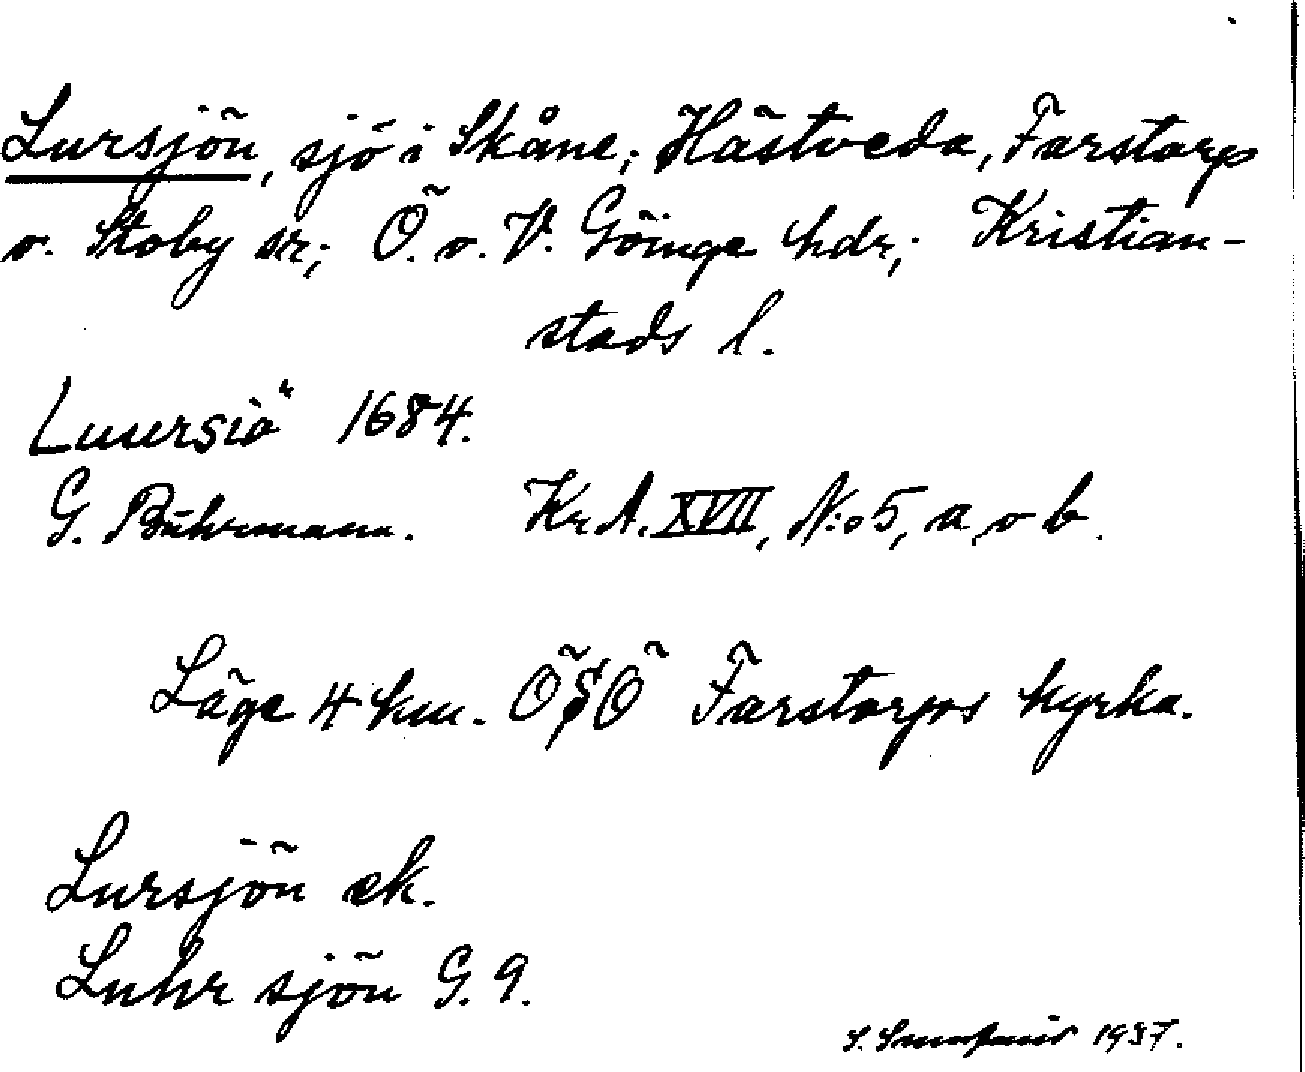 Lursjön, sjö i Skåne; Hästveda, Farstorp
o. Stoby sr; Ö. o. V. Göinge hdr; Kristian-
stads l.
Luursiö 1684.
G. Buhrmann. Kr. A. XVII, N:o 5, a o b.
Läge 4 km. ÖSÖ Farstorps kyrka.
Lursjön ek.
Luhr sjön G. 9.
S. 1937.